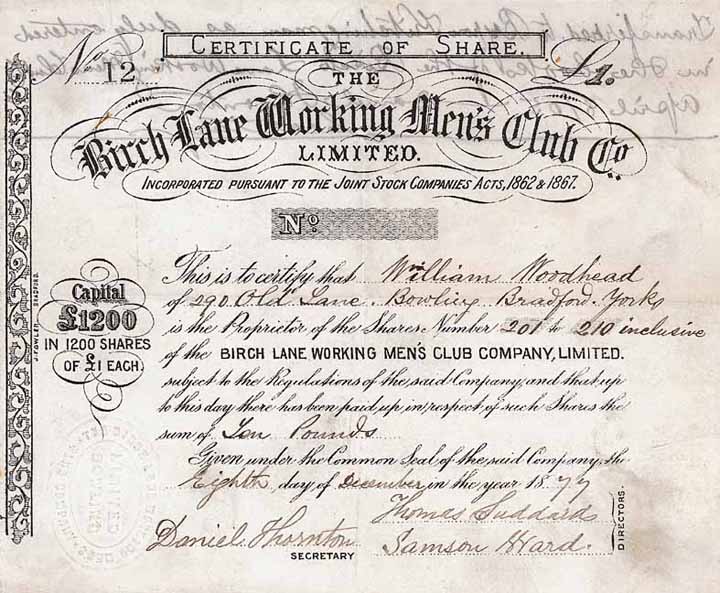 CERTIFICATE OF SHARE.
No. 12
£1.
THE
Birch Lane Working Men's Club Co.
LIMITED.
INCORPORATED PURSUANT TO THE JOINT STOCK COMPANIES ACTS, 1862 & 1867.
No.
Capital
£1200
IN 1200 SHARES
OF £1 EACH.
J. FOWLER, BRADFORD.
This is to certify that William Woodhead
of 290 Old Lane. Bowling Bradford. Yorks
is the Proprietor of the Shares Number 201 to 210 inclusive
of the BIRCH LANE WORKING MEN'S CLUB COMPANY, LIMITED.
subject to the Regulations of the said Company, and that up
to this day there has been paid up in respect of such Shares the
sum of Ten Pounds
Given under the Common Seal of the said Company, the
Eighth day of December in the year 1877
Thomas Suddard
Daniel Thornton
SECRETARY
Samson Ward.
DIRECTORS.